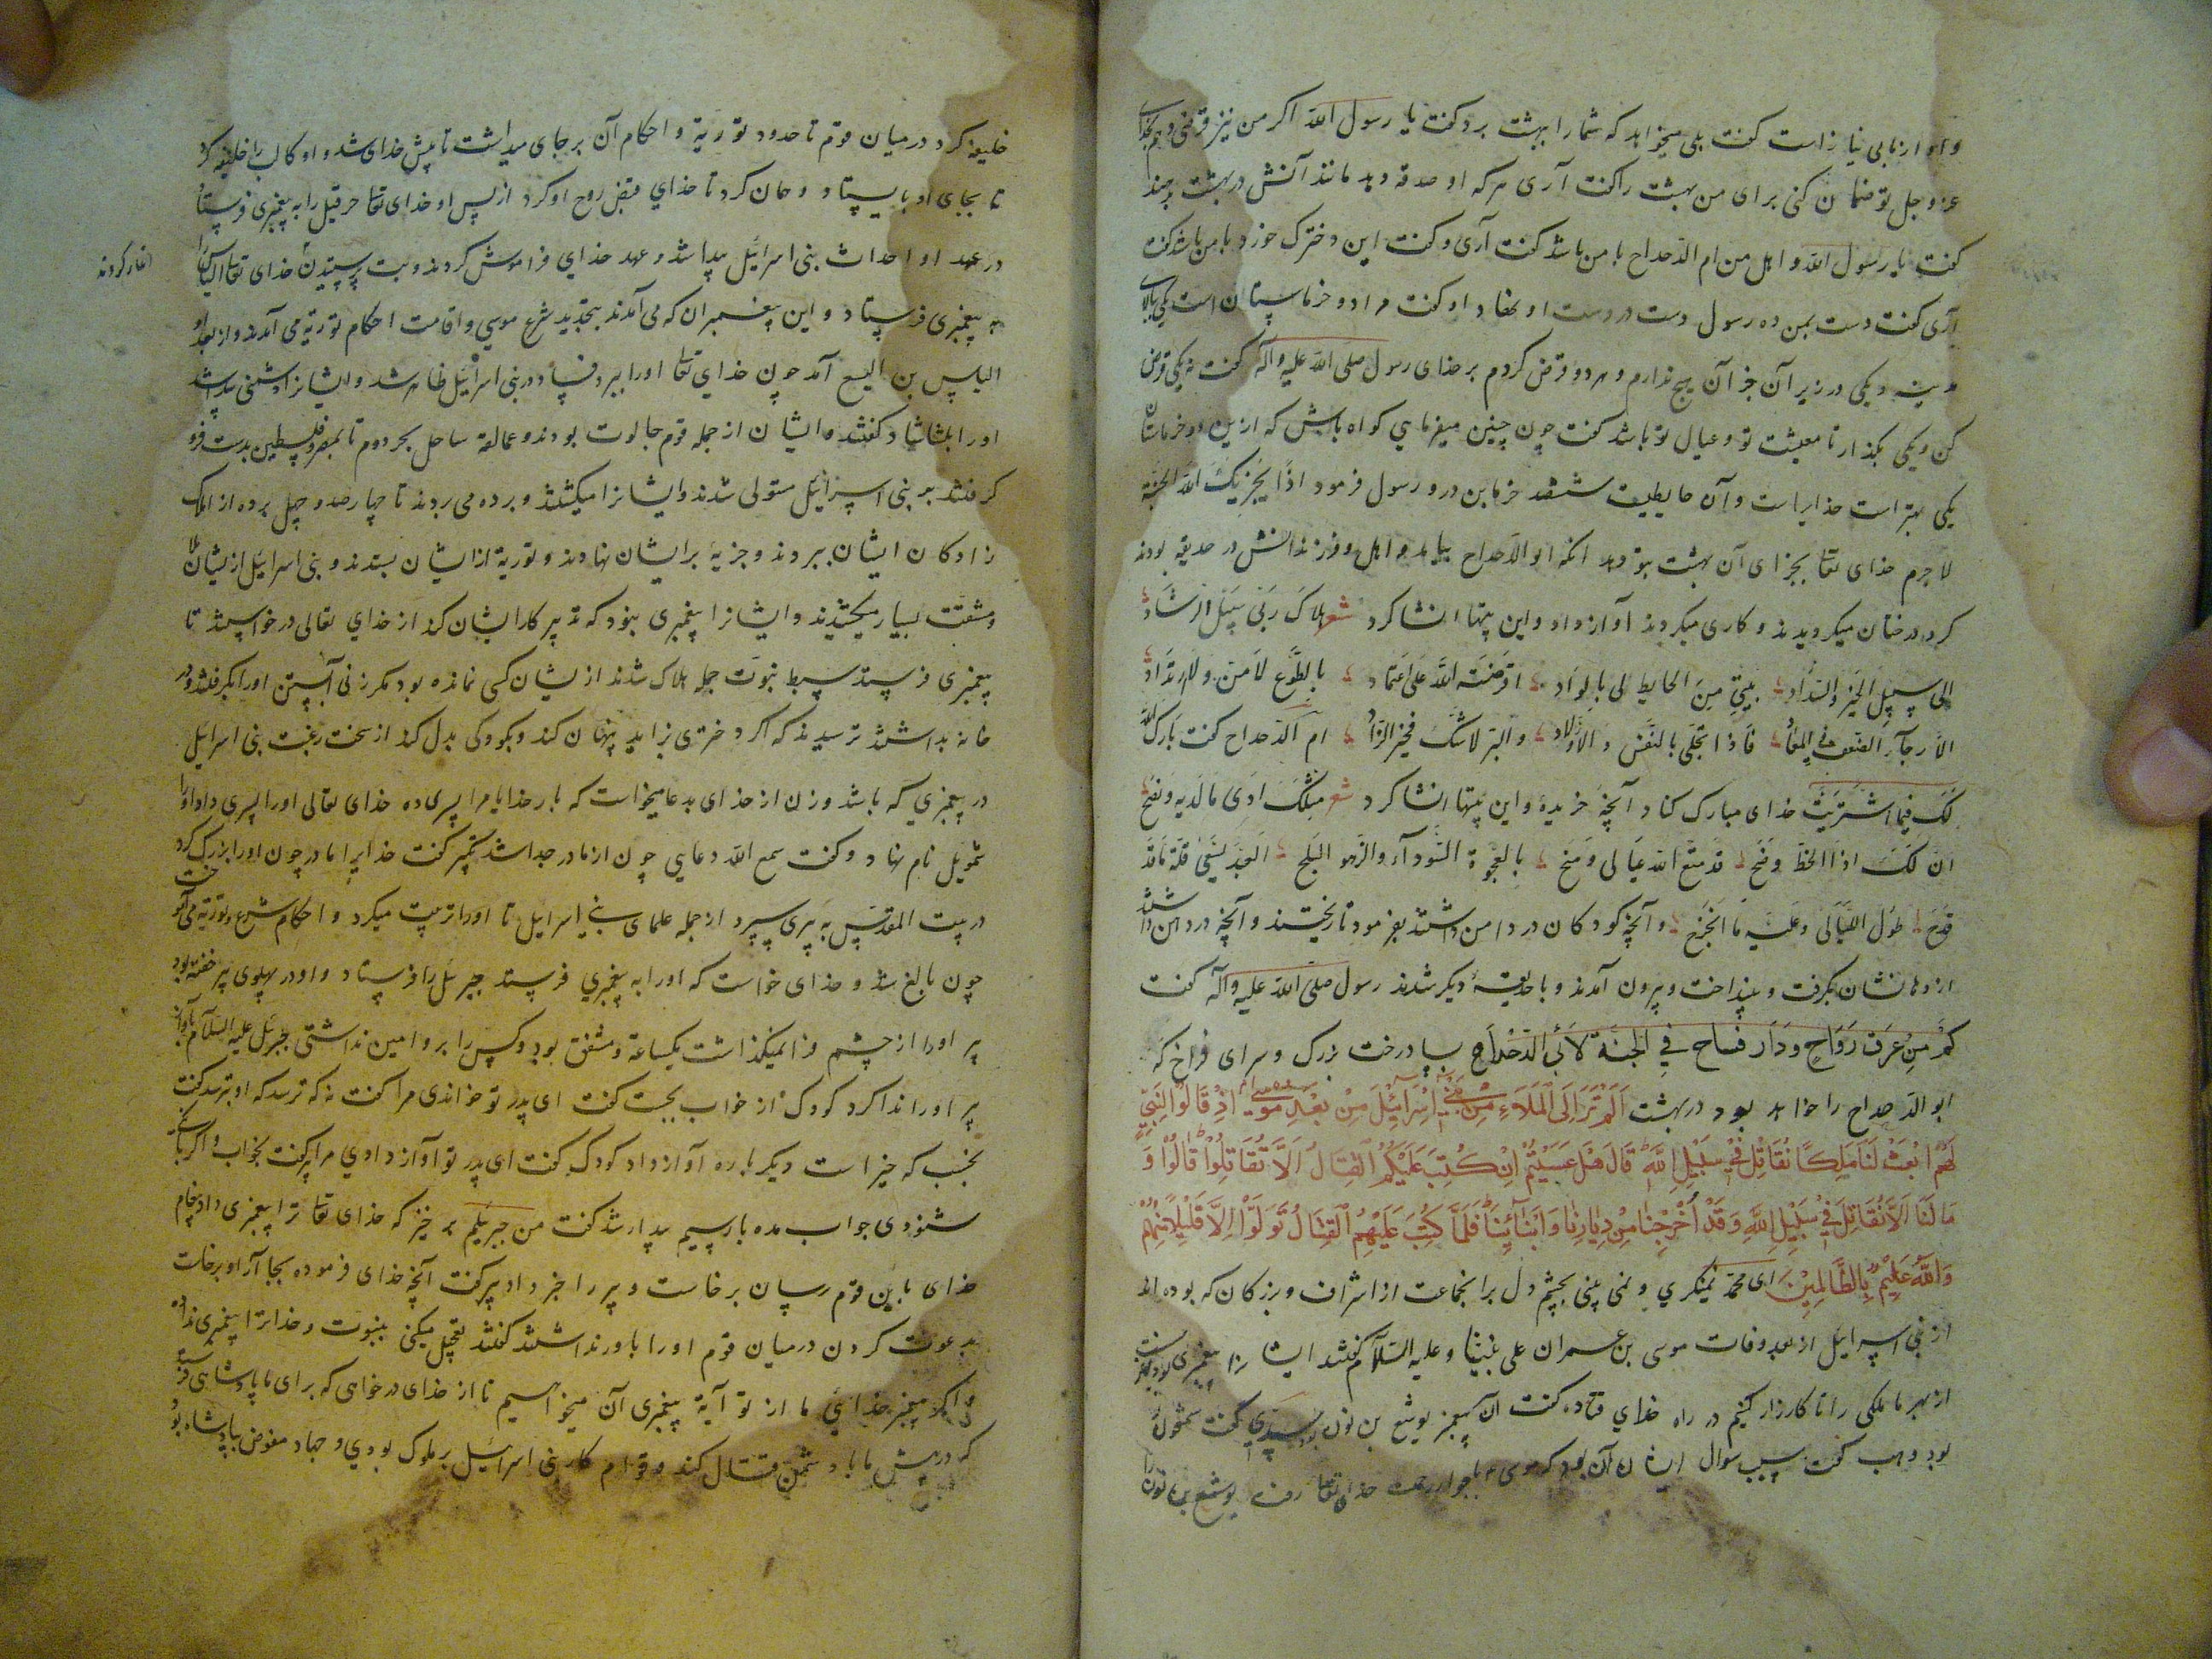 و او از ما بی نیاز است کفت بلی میخواهد که شما را ببهشت برد کفت یا رسول الله اکر من نیز قرضی دهم بخدای
عز و جل تو ضمان کنی برای من بهشت را کفت آری هر که او صدقه دهد مانند آنش در بهشت دهند
کفت یا رسول الله و اهل من ام الدحداح با من باشد کفت آری و کفت این دخترک خورد با من باشد کفت
آری کفت دست بمن ده رسول دست در دست او نهاد او کفت مرا دو خرماستان است یکی ببالای
مدینه و یکی در زیر آن جز آن هیچ ندارم و هر دو قرض کردم بر خدای رسول صلی الله علیه و آله کفت نه یکی قرض
کن و یکی بکذار تا معیشت تو و عیال تو باشد کفت چون چنین میفرمایی کواه باش که ازین دو خرماستان
یکی بهتر است خدایراست و آن حایطیست ششصد خرمابن درو رسول فرمود اذا یجزیک الله الجنة
لا جرم خدای تعا بجزای آن بهشت بتو دهد انکه ابو الدحداح بیامد و اهل و فرزندانش در حدیقه بودند
کرد درختان میکردیدند و کاری میکردند آواز داد و این بیتها انشا کرد شعر هداک ربی سبل الرشاد
الی سبیل الخیر والسداد بینی من الحایط لی بالواد اقرضته الله علی اعتماد بالطوع لا من ولا ارتداد
الا رجآء الضعف فی المعاد فاذا تجلی بالنفس والاولاد والبر لا شک فخیر الزاد ام الدحداح کفت بارک الله
لک فیما اشتریت خدای مبارک کناد آنچه خریدۀ و این بیتها انشا کرد شعر مثلک ادی ما لدیه و نصح
ان لک اذا الحظ وضح قد متع الله عیالی و منح بالعجوة السودآء والزهو البلح العبد یسعی فله ما قد
قدح طول اللیالی وعلیه ما اجترح و آنچه کودکان در دامن داشتند بفرمود تا ریختند و آنچه در دهن داشتند
از دهانشان بکرفت و بینداخت و بیرون آمدند و با حدیقۀ دیکر شدند رسول صلی الله علیه و آله کفت
کم من عرق رواح و دار فساح فی الجنة لابی الدحداح بسا درخت بزرک و سرای فراخ که
ابو الدحداح را خواهد بود در بهشت الم تر الی الملاء من بنی اسرائیل من بعد موسی اذ قالوا لنبی
لهم ابعث لنا ملکا نقاتل فی سبیل الله قال هل عسیتم ان کتب علیکم القتال الا تقاتلوا قالوا و
ما لنا الا نقاتل فی سبیل الله و قد اخرجنا من دیارنا و ابنائنا فلما کتب علیهم القتال تولوا الا قلیلا منهم
والله علیم بالظالمین ای محمد نمینکری و نمی بینی بچشم دل بر انجماعت از اشراف و بزرکان که بوده اند
از بنی اسرایل از بعد وفات موسی بن عمران علی نبینا و علیه السلام کفتند ایشا نرا پیغمبری بود بفرست
از بهر ما ملکی را تا کارزار کنیم در راه خدای قتاده کفت آن پیغمبر یوشع بن نون بود سدی کفت شمعون
بود وهب کفت سبب سوال ایشان آن بود که موسی با جوار رحمت خدای تعا رفت یوشع بن نون را
خلیفه کرد در میان قوم تا حدود توریة و احکام آن بر جای میداشت تا پیش خدای شد و او کالب را خلیفه کرد
تا بجای او بایستاد و همان کرد تا خدای قبض روح او کرد از پس او خدای تعا حزقیل را به پیغمبری فرستاد
در عهد او احداث بنی اسرائیل پیدا شد و عهد خدای فراموش کردند و بت پرستیدن خدای تعا الیاس را
آغاز کردند
به پیغمبری فرستاد و این پیغمبران که می آمدند بتجدید شرع موسی و اقامت احکام توریة می آمدند و از بعد او
الیاس بن الیسع آمد چون خدای تعا او را ببرد فساد در بنی اسرائیل ظاهر شد و ایشانرا دشمنی پیدا شد
او را بلشاثا کفتند و ایشان از جمله قوم جالوت بودند و عمالقه ساحل بحر دوم تا بمصر و فلسطین بدست فرو
کرفتند بر بنی اسرائیل مستولی شدند و ایشانرا میکشتند و برده می بردند تا چهار صد و چهل برده از ملک
زادکان ایشان ببردند و جزیه بر ایشان نهادند و توریة از ایشان بستدند و بنی اسرائیل ازیشان بلا
و مشقت بسیار میکشیدند و ایشانرا پیغمبری نبود که تدبیر کار ایشان کند از خدای تعالی درخواستند تا
پیغمبری فرستد سبط نبوت جمله هلاک شدند ازیشان کسی نمانده بود مکر زنی آبستن او را بکرفتند و در
خانه بداشتند ترسیدند که اکر دختری زاید پنهان کند و بکودکی بدل کند از سخت رغبت بنی اسرایل
در پیغمبری که باشد و زن از خدای بدعا میخواست که بار خدایا مرا پسری ده خدای تعالی او را پسری داد او را
شمویل نام نهاد و کفت سمع الله دعایی چون از مادر جدا شد تکبیر کفت خدایرا مادر چون او را بزرک کرد
در بیت المقدس به پیری سپرد از جمله علمای بنی اسرایل تا او را تربیت میکرد و احکام شرع و توریة می آموخت
چون بالغ شد و خدای خواست که او را به پیغمبری فرستد جبرئیل را فرستاد و او در پهلوی پیر خفته بود
پیر او را از چشم فرا نمیکذاشت یکساعة و مشفق بود و کس را برو امین نداشتی جبرئیل علیه السلام بآواز
پیر او را ندا کرد کودک از خواب بجست کفت ای پدر تو خواندی مرا کفت نه که ترسد که او بترسد کفت
بخسب که خیر است دیکر باره آواز داد کودک کفت ای پدر تو آواز دادی مرا پیر کفت بخواب و اکر بانک
شنودی جواب مده بار سیم بیدار شد کفت من جبرئیلم بر خیز که خدای تعا ترا پیغمبری داد پیغام
خدای باین قوم رسان برخاست و پیر را خبر داد پیر کفت آنچه خدای فرموده بجا آر او برخاست
بدعوت کردن در میان قوم او را باور نداشتند کفتند تعجیل میکنی بنبوت و خدا ترا پیغمبری نداده
و اکر پیغمبر خدائی ما از تو آیة پیغمبری آن میخواهیم تا از خدای درخواهی که برای ما پادشاهی
که در پیش ما با دشمن قتال کند و قوام کار بنی اسرائیل بر ملوک بودی و جهاد مفوض بپادشاه بود